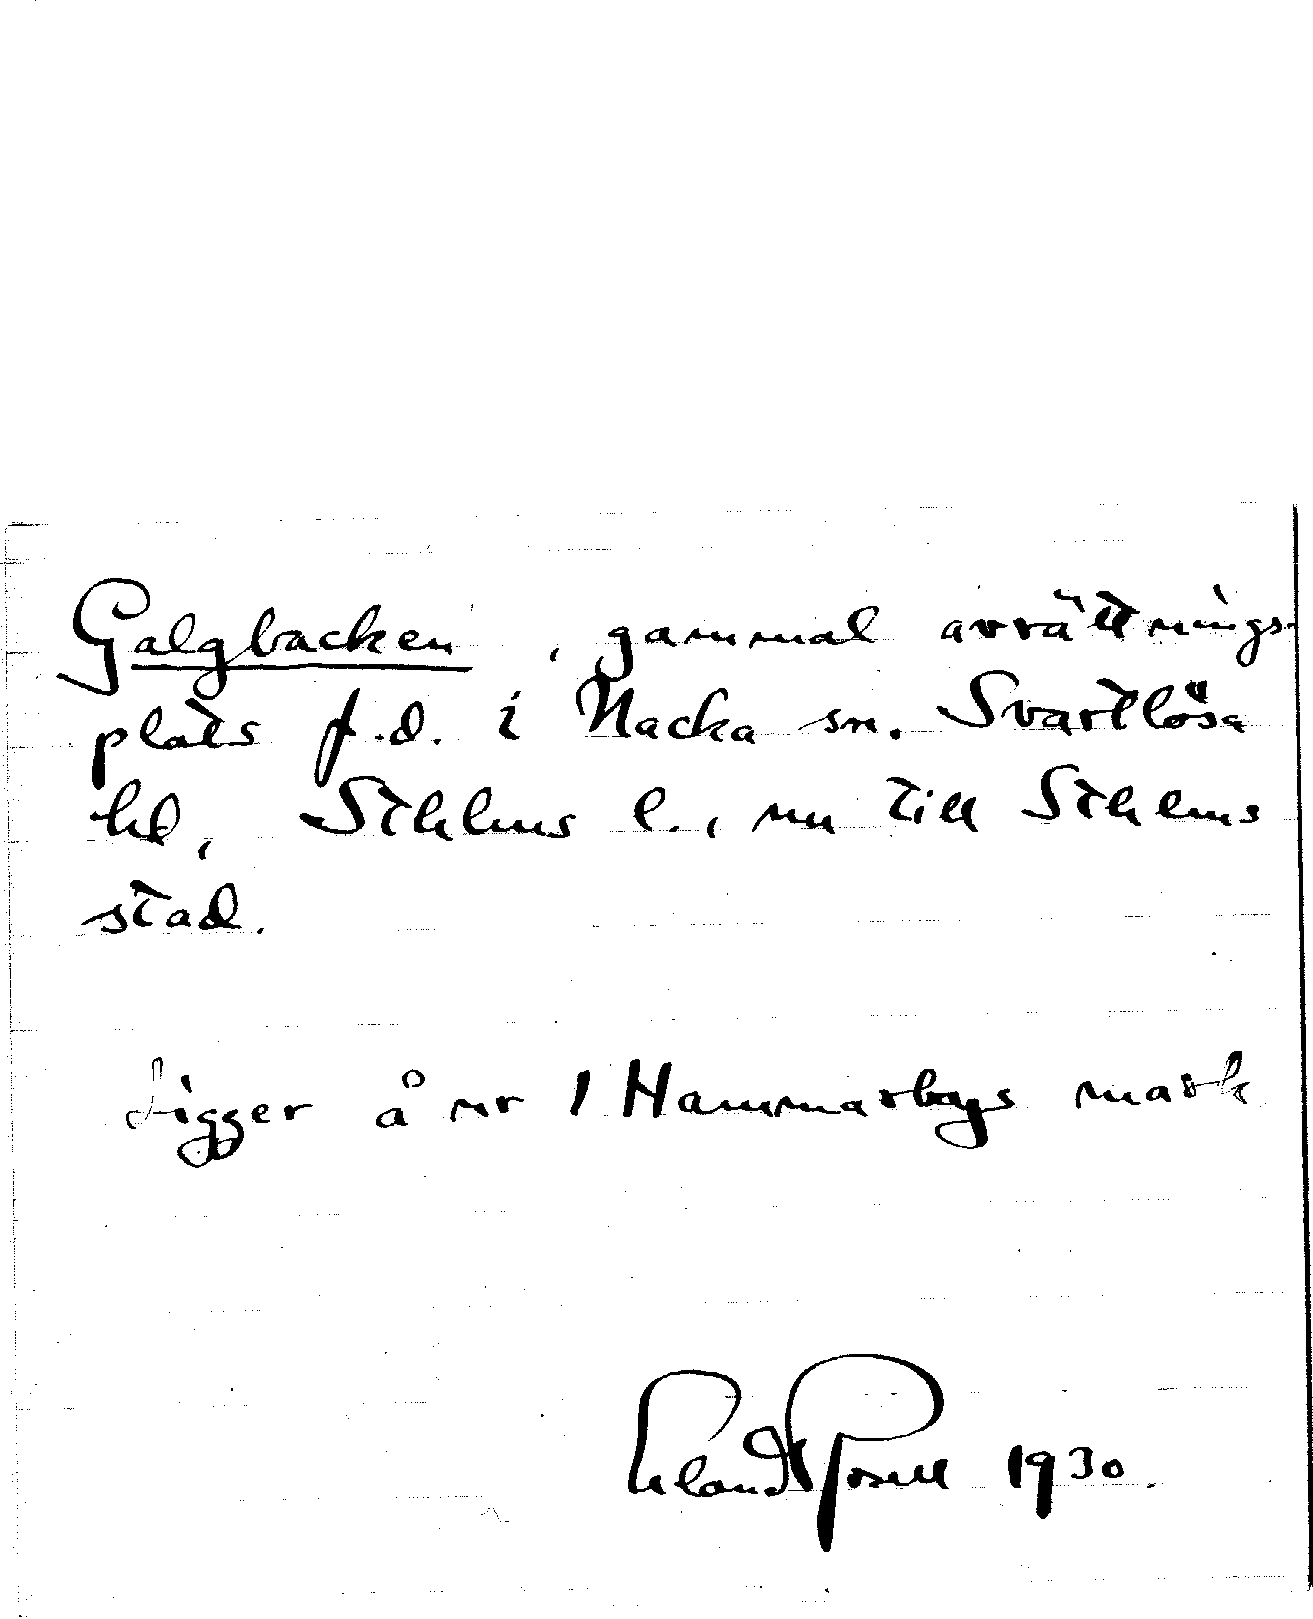 Galgbacken, gammal avrättnings-
plats f.d. i Nacka sn. Svartlösa
hd, Sthlms l., nu till Sthlms
stad.
Ligger å nr 1 Hammarbys mark
Erland Rosell 1930.